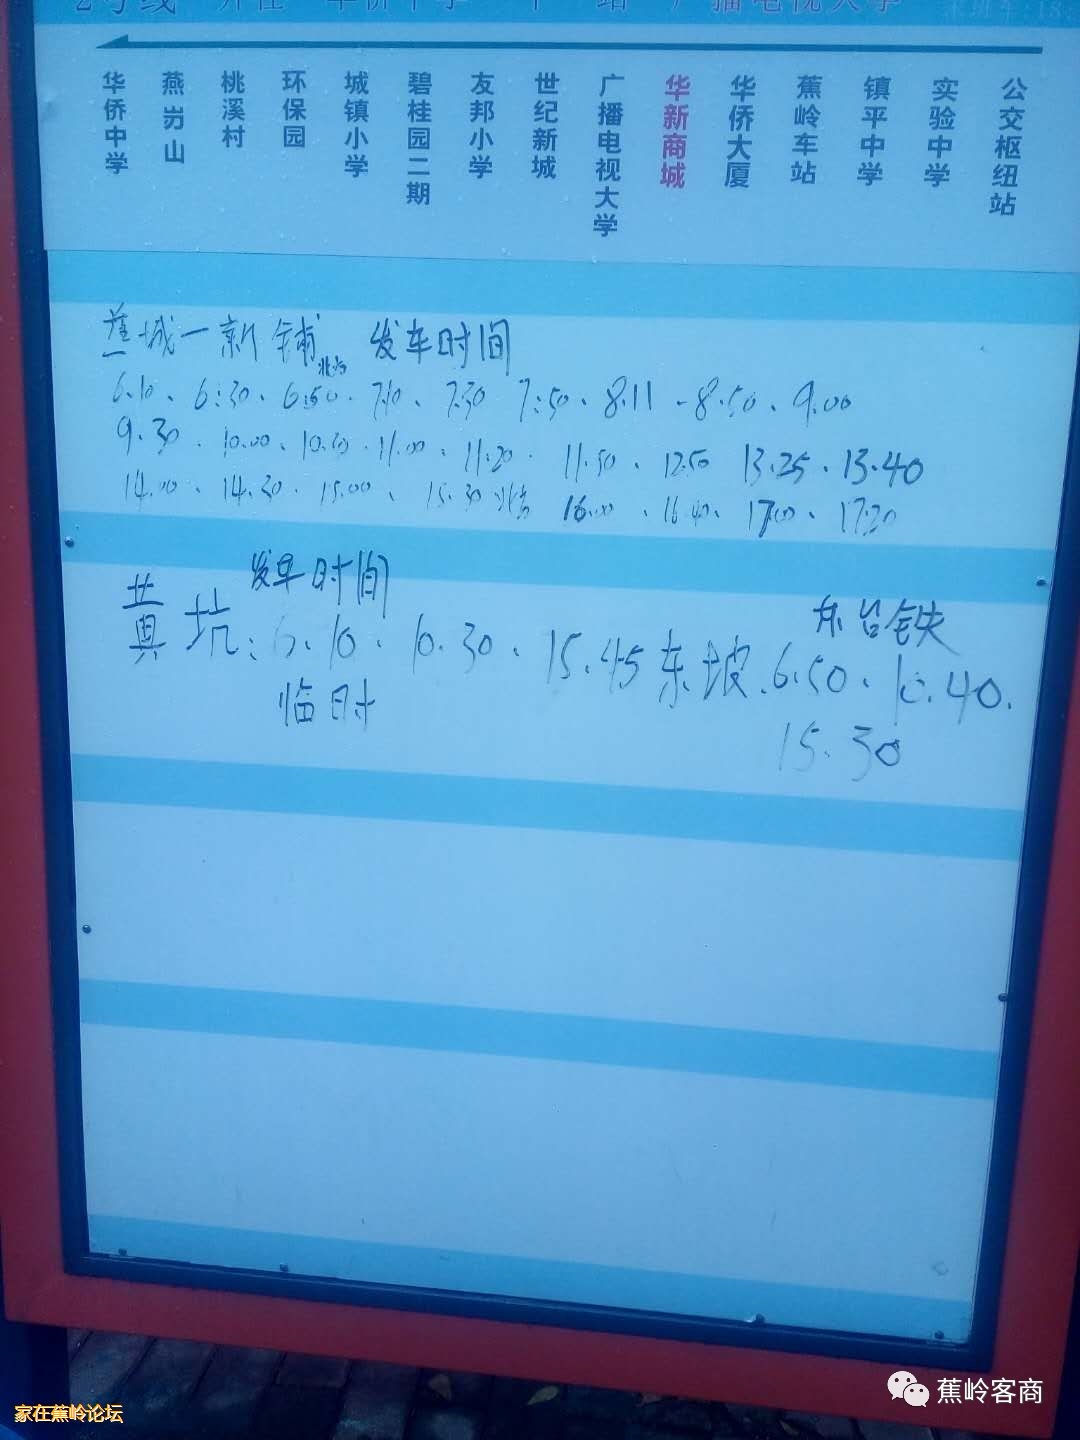 2号线
广播电视大学
华侨中学
燕岃山
桃溪村
环保园
城镇小学
碧桂园二期
友邦小学
世纪新城
广播电视大学
华新商城
华侨大厦
蕉岭车站
镇平中学
实验中学
公交枢纽站
蕉城一新铺 发车时间
6.10、6:30、6:50、7.10、7.30 7:50、8.11-8.50、9.00
9.30、10.00、10.30、11.00、11.20、11.50、12.50 13.25、13.40
14.00、14.30、15.00、15.30 16.00、16.40、17.00、17.20
发车时间
东台铁
黄坑:6.10、10.30、15.45东坡.6.50、10.40.
临时
15.30
蕉岭客商
家在蕉岭论坛